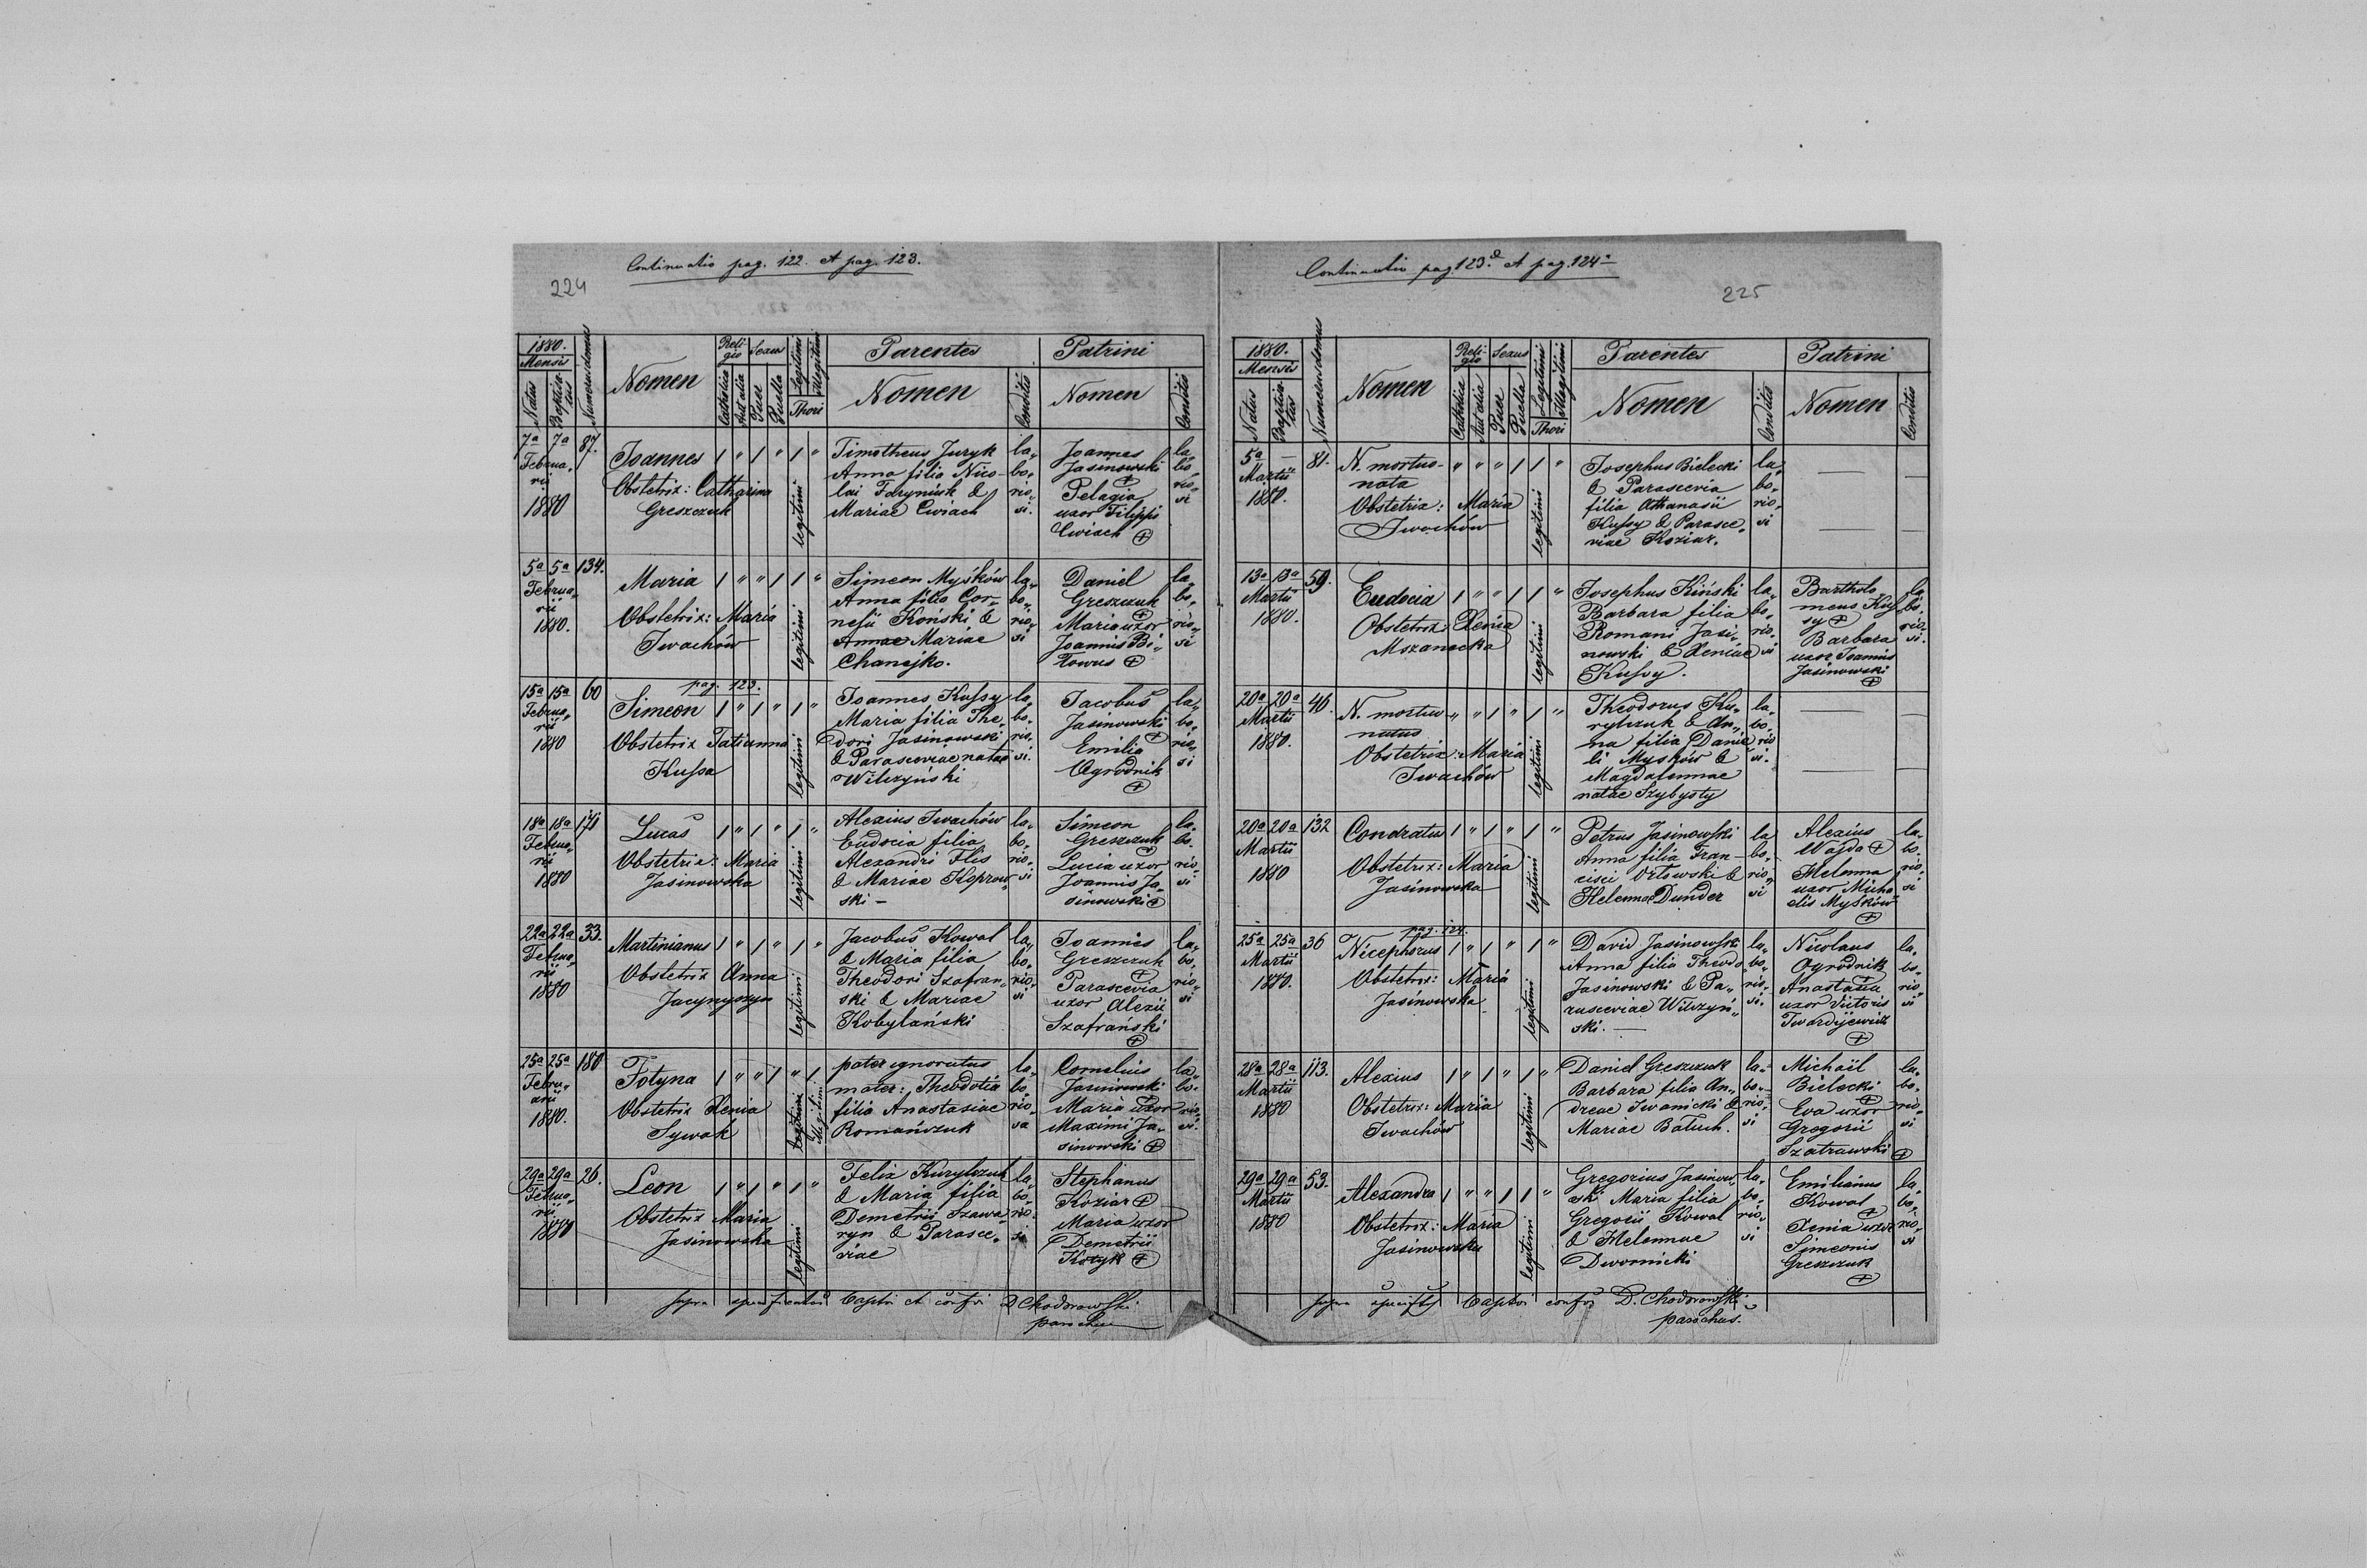 Continuatio pag. 122. et pag. 123.
224
1880.
Mensis
Natus
Baptisatus
Numerus domus
Nomen
Religio
Catholica
Aut alia
Sexus
Puer
Puella
Legitimi
Illegitimi
Thori
Parentes
Nomen
Conditio
Patrini
Nomen
Conditio
7a 7a 87.
Februa„
rii
1880
Joannes 1 " 1 " 1 "
Obstetrix: Catharina
Greszczuk
legitimi
Timotheus Juryk
Anna filia Nico-
lai &
Mariae Cwiach
la„
bo„
rio„
si.
Joannes
Jasinowski
Pelagia
uxor Filippi
Cwiach
la„
bo„
rio„
si
5a 5a 134.
Februa„
rii
1880.
Maria 1 " " 1 1 "
Obstetrix: Maria
Iwachów
legitimi
Simeon Myśków
Anna filia Cor„
nelii Koński &
Annae Mariae
Chanejko.
la„
bo„
rio„
si
Daniel
Greszczuk
Maria uxor
Joannis Bi„
la„
bo„
rio„
si
15a 15a 60
Februa„
rii
1880
pag. 123.
Simeon 1 " 1 " 1 "
Obstetrix Tatianna
Kussa
legitimi
Joannes Kussy
Maria filia The„
dori Jasinowski
& Parasceviae natae
Wilczyński
la„
bo„
rio„
si.
Jacobus
Jasinowski
Emilia
Ogrodnik
la„
bo„
rio„
si
18a 18a 171
Februa„
rii
1880
Lucas 1 " 1 " 1 "
Obstetrix: Maria
Jasinowska
legitimi
Alexius Iwachów
Eudocia filia
Alexandri Flis
& Mariae Koprow„
ski —
la„
bo„
rio„
si
Simeon
Greszczuk
Lucia uxor
Joannis Ja„
sinowski
la„
bo.
rio„
si
22a 22a 33.
Februa„
rii
1880
Martinianus 1 " 1 " 1 "
Obstetrix Anna
legitimi
Jacobus Kowal
& Maria filia
Theodori Szafran„
ski & Mariae
Kobylański
la„
bo„
rio„
si
Joannes
Greszczuk
Parascevia
uxor Alexii
Szafrański
la„
bo„
rio„
si
25a 25a 180
Febru„
arii
1880.
Fotyna 1 " " 1 " 1
Obstetrix Xenia
Sywak
legitimi
Illegitimi
pater ignoratus
mater: Theodotia
filia Anastasiae
Romańczuk
la„
bo„
rio„
sa
Cornelius
Jasinowski
Maria uxor
Maximi Ja„
sinowski
la„
bo„
rio„
si.
29a 29a 26.
Februa„
rii
1880
Leon 1 " 1 " 1 "
Obstetrix Maria
Jasinowska
legitimi
Felix Kurylczuk
& Maria filia
Demetrii Szawa„
ryn & Parasce„
viae
la„
bo„
rio.
si
Stephanus
Koziar
Maria uxor
Demetrii
Kotyk
supra specificatos baptisi et confir D Chodorowski
parochus
Continuatio pag. 123. et pag. 124.
225
1880.
Mensis
Natus
Baptisatus
Numerus domus
Nomen
Religio
Catholica
Aut alia
Sexus
Puer
Puella
Legitimi
Illegitimi
Thori
Parentes
Nomen
Conditio
Patrini
Nomen
Conditio
5a — 81.
Martii
1880.
N. mortuo-
nata
" " " 1 1 "
Obstetrix: Maria
Iwachów
legitimi
Josephus Bielecki
& Parascevia
filia Athanasii
Kussy & Parasce„
viae Koziar.
la„
bo„
rio„
si
13a 13a 59.
Martii
1880.
Eudocia 1 " " 1 1 "
Obstetrix: Xenia
Mszanecka
legitimi
Josephus Kiński
Barbara filia
Romani Jasi„
nowski & Xeniae
Kussy.
la„
bo„
rio„
si
Bartholo
meus Kus
sy
Barbara
uxor Joannis
Jasinowski
la„
bo„
rio„
si.
20a 20a 46.
Martii
1880.
N. mortuo
natus
" " 1 " 1 "
Obstetrix: Maria
Iwachów
legitimi
Theodorus Ku„
rylczuk & An„
na filia Danie
li Myśków &
Magdalennae
natae Szybysty
la„
bo„
rio
si.
20a 20a 132
Martii
1880
Condratus 1 " 1 " 1 "
Obstetrix: Maria
Jasinowska
legitimi
Petrus Jasinowski
Anna filia Fran—
cisci Orłowski &
Helennae Dunder
la
bo„
rio„
si
Alexius
Wajda
Helenna
uxor Micha
elis Myśków
la„
bo.
rio„
si
25a 25a 36
Martii
1880.
pag. 124.
Nicephorus 1 " 1 " 1 "
Obstetrix: Maria
Jasinowska
legitimi
David Jasinowski
Anna filia Theodo
Jasinowski & Pa„
rasceviae Wilczyń„
ski. —
la„
bo„
rio„
si.
Nicolaus
Ogrodnik
Anastasia
uxor Victoris
la„
bo„
rio„
si
28a 28a 113.
Martii
1880
Alexius 1 " 1 " 1 "
Obstetrix: Maria
Iwachów
legitimi
Daniel Greszczuk
Barbara filia An„
dreae Iwanicki &
Mariae Batiuch.
la„
bo„
rio„
si
Michaël
Bielecki
Eva uxor
Gregorii
Szatrawski
la„
bo„
rio„
si
29a 29a 53.
Martii
1880
Alexandra 1 " " 1 1 "
Obstetrix: Maria
Jasinowska
legitimi
Gregorius Jasinow„
ski Maria filia
Gregorii Kowal
& Helennae
Dwornicki
la„
bo„
rio„
si
Emilianus
Kowal
Xenia uxor
Simeonis
Greszczuk
la„
bo„
rio„
si
supra baptisi confir D. Chodorowski
parochus.